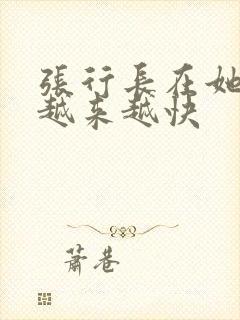 張行長在她
越來越快
蕭巷